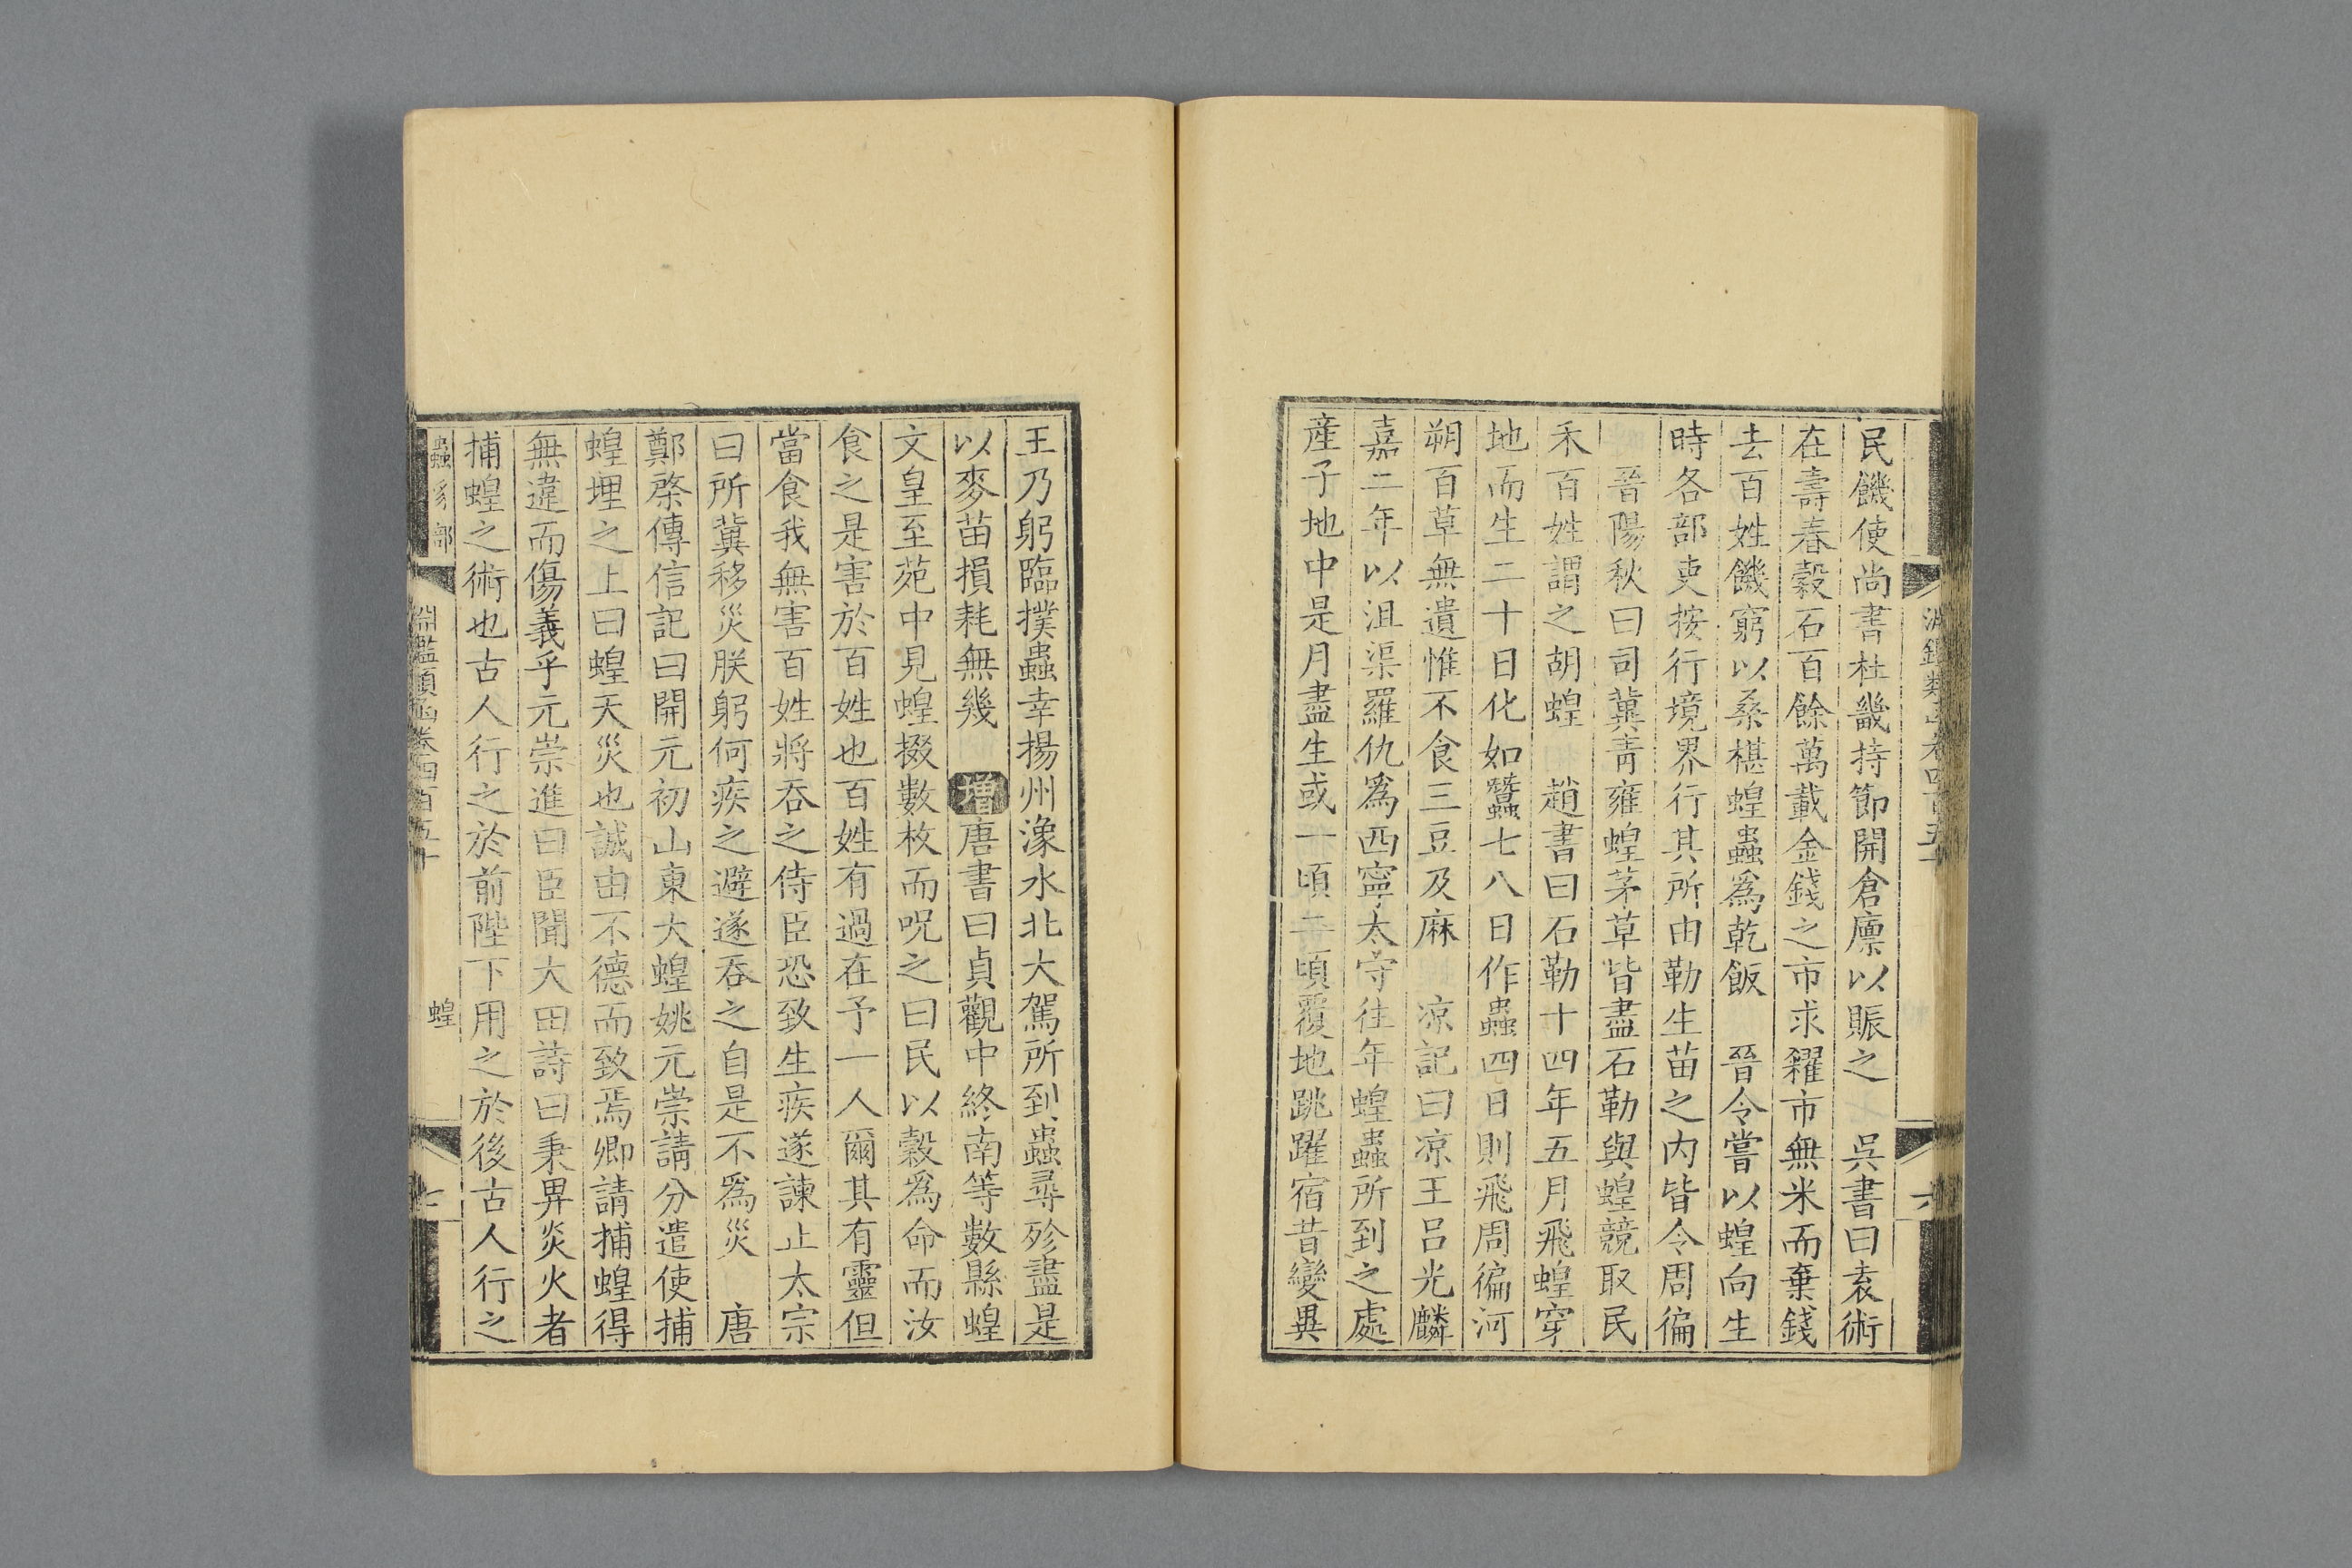 民饑使尚書杜畿持節開倉廪以賑之　吳書曰袁術
在壽春穀石百餘萬載金錢之市求糴市無米而棄錢
去百姓饑窮以桑椹蝗蟲爲乾飯　晉令嘗以蝗向生
時各部吏按行境界行其所由勒生苗之内皆令周徧
晉陽秋曰司冀青雍蝗茅草皆盡石勒與蝗競取民
禾百姓謂之胡蝗　趙書曰石勒十四年五月飛蝗穿
地而生二十日化如蠶七八日作蟲四日則飛周徧河
朔百草無遺惟不食三豆及麻　凉記曰凉王呂光麟
嘉二年以沮渠羅仇爲西寧太守往年蝗蟲所到之處
産子地中是月盡生或一頃二頃覆地跳躍宿昔變異
王乃躬臨撲蟲幸揚州湪水北大駕所到蟲尋殄盡是
以麥苗損耗無幾　增唐書曰貞觀中終南等數縣蝗
文皇至苑中見蝗掇數枚而呪之曰民以穀爲命而汝
食之是害於百姓也百姓有過在予一人爾其有靈但
當食我無害百姓將吞之侍臣恐致生疾遂諫止太宗
曰所冀移災朕躬何疾之避遂吞之自是不爲災　唐
鄭棨傳信記曰開元初山東大蝗姚元崇請分遣使捕
蝗埋之上曰蝗天災也誠由不德而致焉卿請捕蝗得
無違而傷義乎元崇進曰臣聞大田詩曰秉畀炎火者
捕蝗之術也古人行之於前陛下用之於後古人行之
蟲豸部
淵鑑類函卷四百五十
蝗
七